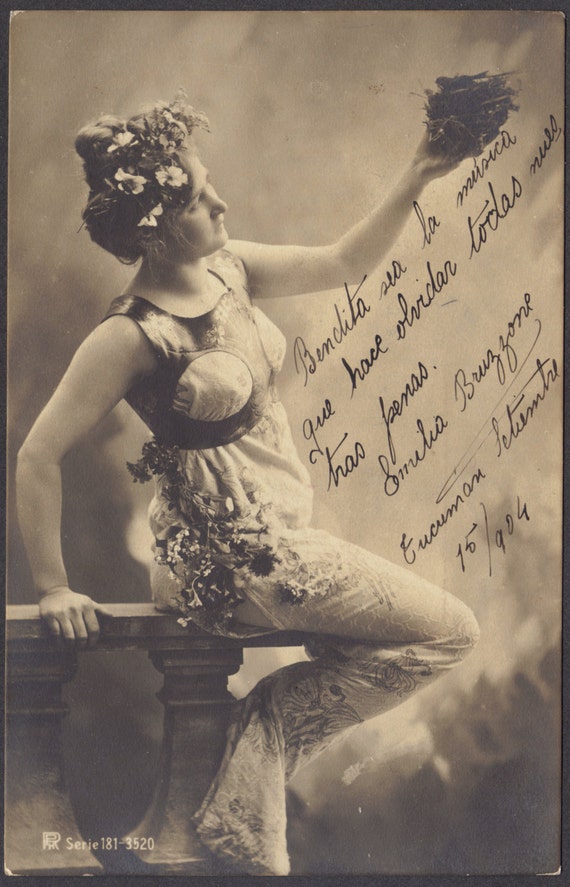 Bendita sea la música
que hace olvidar todas nues
tras penas.
Emilia Bruzzone
Tucuman Setiembre
15/904
RPH Serie 181-3520